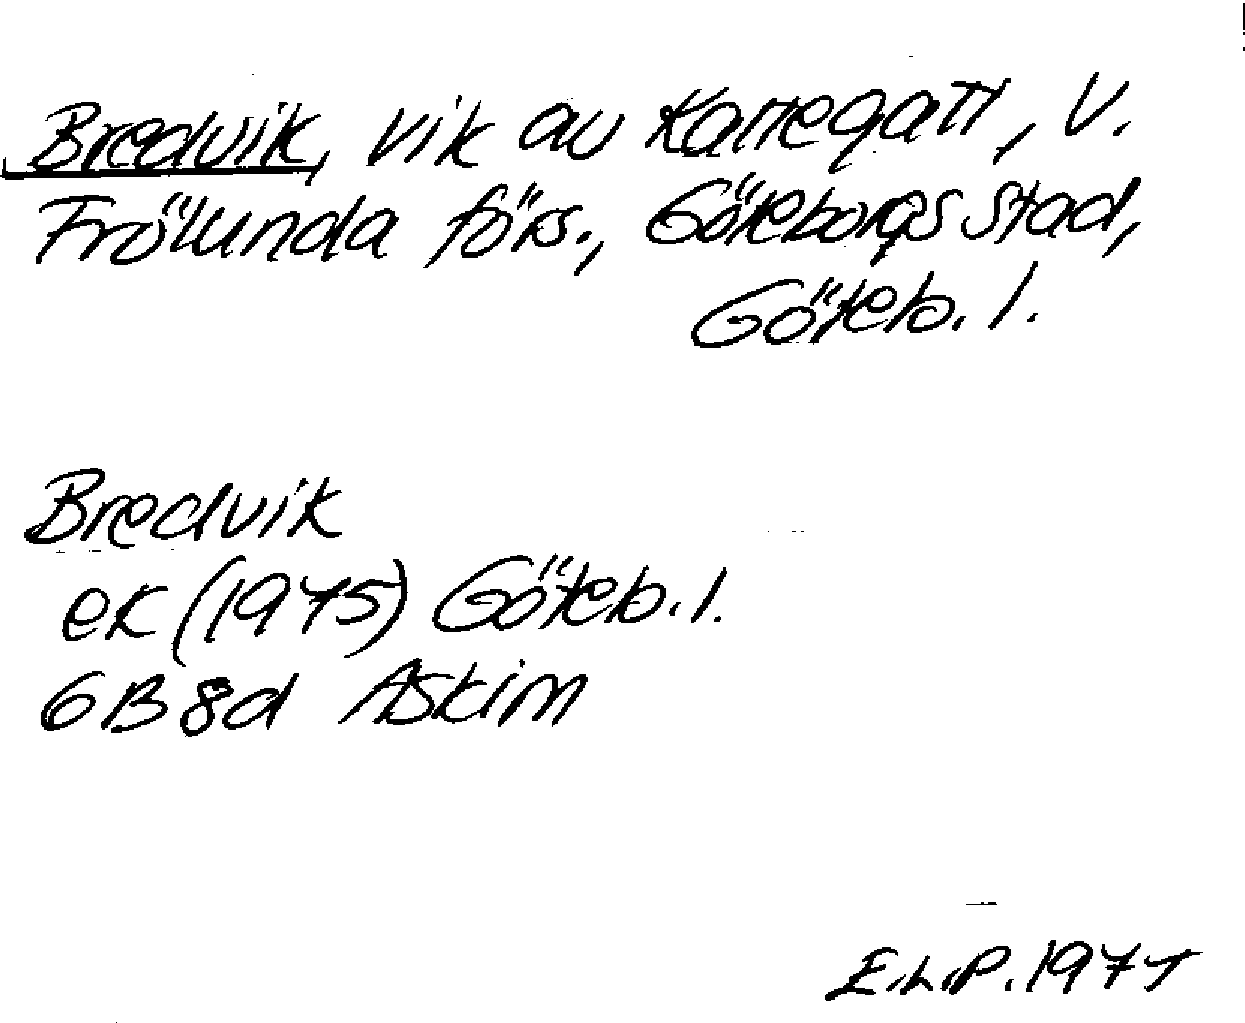 Bredvik, vik av Kattegatt, V.
Frölunda förs., Göteborgs stad,
Göteb. l.
Bredvik
ek (1975) Göteb. l.
6B 8d Askim
E.L.P. 1977